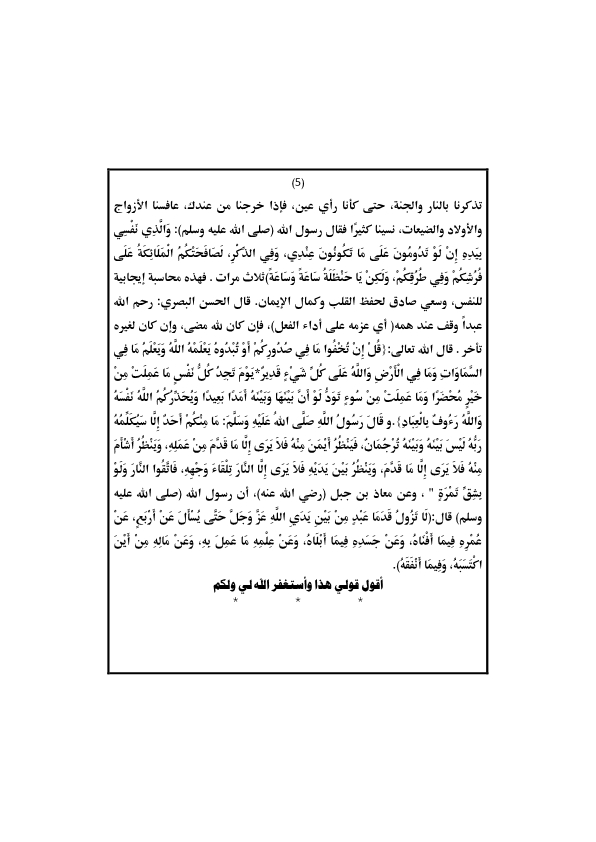 (5)
تذكرنا بالنار والجنة، حتى كأنا رأي عين، فإذا خرجنا من عندك، عافسنا الأزواج
والأولاد والضيعات، نسينا كثيرًا فقال رسول الله (صلى الله عليه وسلم): وَالَّذِي نَفْسِي
بِيَدِهِ إِنْ لَوْ تَدُومُونَ عَلَى مَا تَكُونُونَ عِنْدِي، وَفِي الذِّكْرِ، لَصَافَحَتْكُمُ الْمَلَائِكَةُ عَلَى
فُرُشِكُمْ وَفِي طُرُقِكُمْ، وَلَكِنْ يَا حَنْظَلَةُ سَاعَةً وَسَاعَةً)ثلاث مرات . فهذه محاسبة إيجابية
للنفس، وسعي صادق لحفظ القلب وكمال الإيمان. قال الحسن البصري: رحم الله
عبداً وقف عند همه( أي عزمه على أداء الفعل)، فإن كان لله مضى، وإن كان لغيره
تأخر . قال الله تعالى: {قُلْ إِنْ تُخْفُوا مَا فِي صُدُورِكُمْ أَوْ تُبْدُوهُ يَعْلَمْهُ اللَّهُ وَيَعْلَمُ مَا فِي
السَّمَاوَاتِ وَمَا فِي الْأَرْضِ وَاللَّهُ عَلَى كُلِّ شَيْءٍ قَدِيرٌ*يَوْمَ تَجِدُ كُلُّ نَفْسٍ مَا عَمِلَتْ مِنْ
خَيْرٍ مُحْضَرًا وَمَا عَمِلَتْ مِنْ سُوءٍ تَوَدُّ لَوْ أَنَّ بَيْنَهَا وَبَيْنَهُ أَمَدًا بَعِيدًا وَيُحَذِّرُكُمُ اللَّهُ نَفْسَهُ
وَاللَّهُ رَءُوفٌ بِالْعِبَادِ}.و قَالَ رَسُولُ اللَّهِ صَلَّى اللهُ عَلَيْهِ وَسَلَّمَ: مَا مِنْكُمْ أَحَدٌ إِلَّا سَيُكَلِّمُهُ
رَبُّهُ لَيْسَ بَيْنَهُ وَبَيْنَهُ تُرْجُمَانٌ، فَيَنْظُرُ أَيْمَنَ مِنْهُ فَلاَ يَرَى إِلَّا مَا قَدَّمَ مِنْ عَمَلِهِ، وَيَنْظُرُ أَشْأَمَ
مِنْهُ فَلاَ يَرَى إِلَّا مَا قَدَّمَ، وَيَنْظُرُ بَيْنَ يَدَيْهِ فَلاَ يَرَى إِلَّا النَّارَ تِلْقَاءَ وَجْهِهِ، فَاتَّقُوا النَّارَ وَلَوْ
بِشِقِّ تَمْرَةٍ " ، وعن معاذ بن جبل (رضي الله عنه)، أن رسول الله (صلى الله عليه
وسلم) قال:(لَا تَزُولُ قَدَمَا عَبْدٍ مِنْ بَيْنِ يَدَيِ اللَّهِ عَزَّ وَجَلَّ حَتَّى يُسْأَلَ عَنْ أَرْبَعٍ، عَنْ
عُمْرِهِ فِيمَا أَفْنَاهُ، وَعَنْ جَسَدِهِ فِيمَا أَبْلَاهُ، وَعَنْ عِلْمِهِ مَا عَمِلَ بِهِ، وَعَنْ مَالِهِ مِنْ أَيْنَ
اكْتَسَبَهُ، وَفِيمَا أَنْفَقَهُ).
أقول قولي هذا وأستغفر الله لي ولكم
* * *